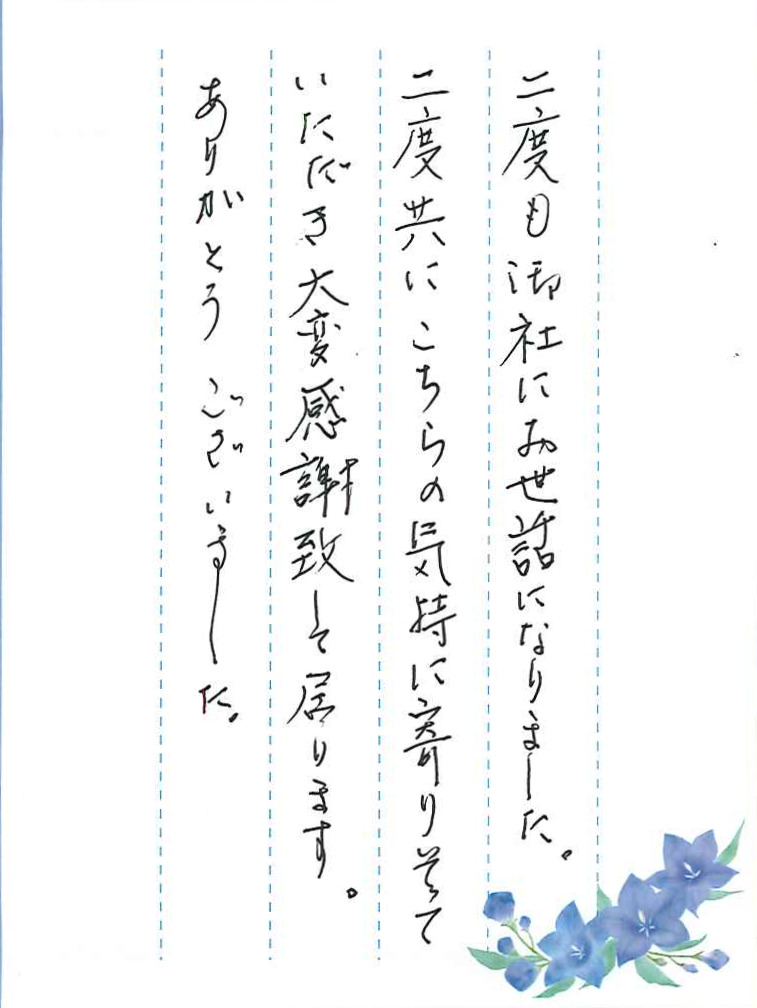 二度も御社にお世話になりました。
二度共にこちらの気持に寄りそって
いただき大変感謝致して居ります。
ありがとうございました。